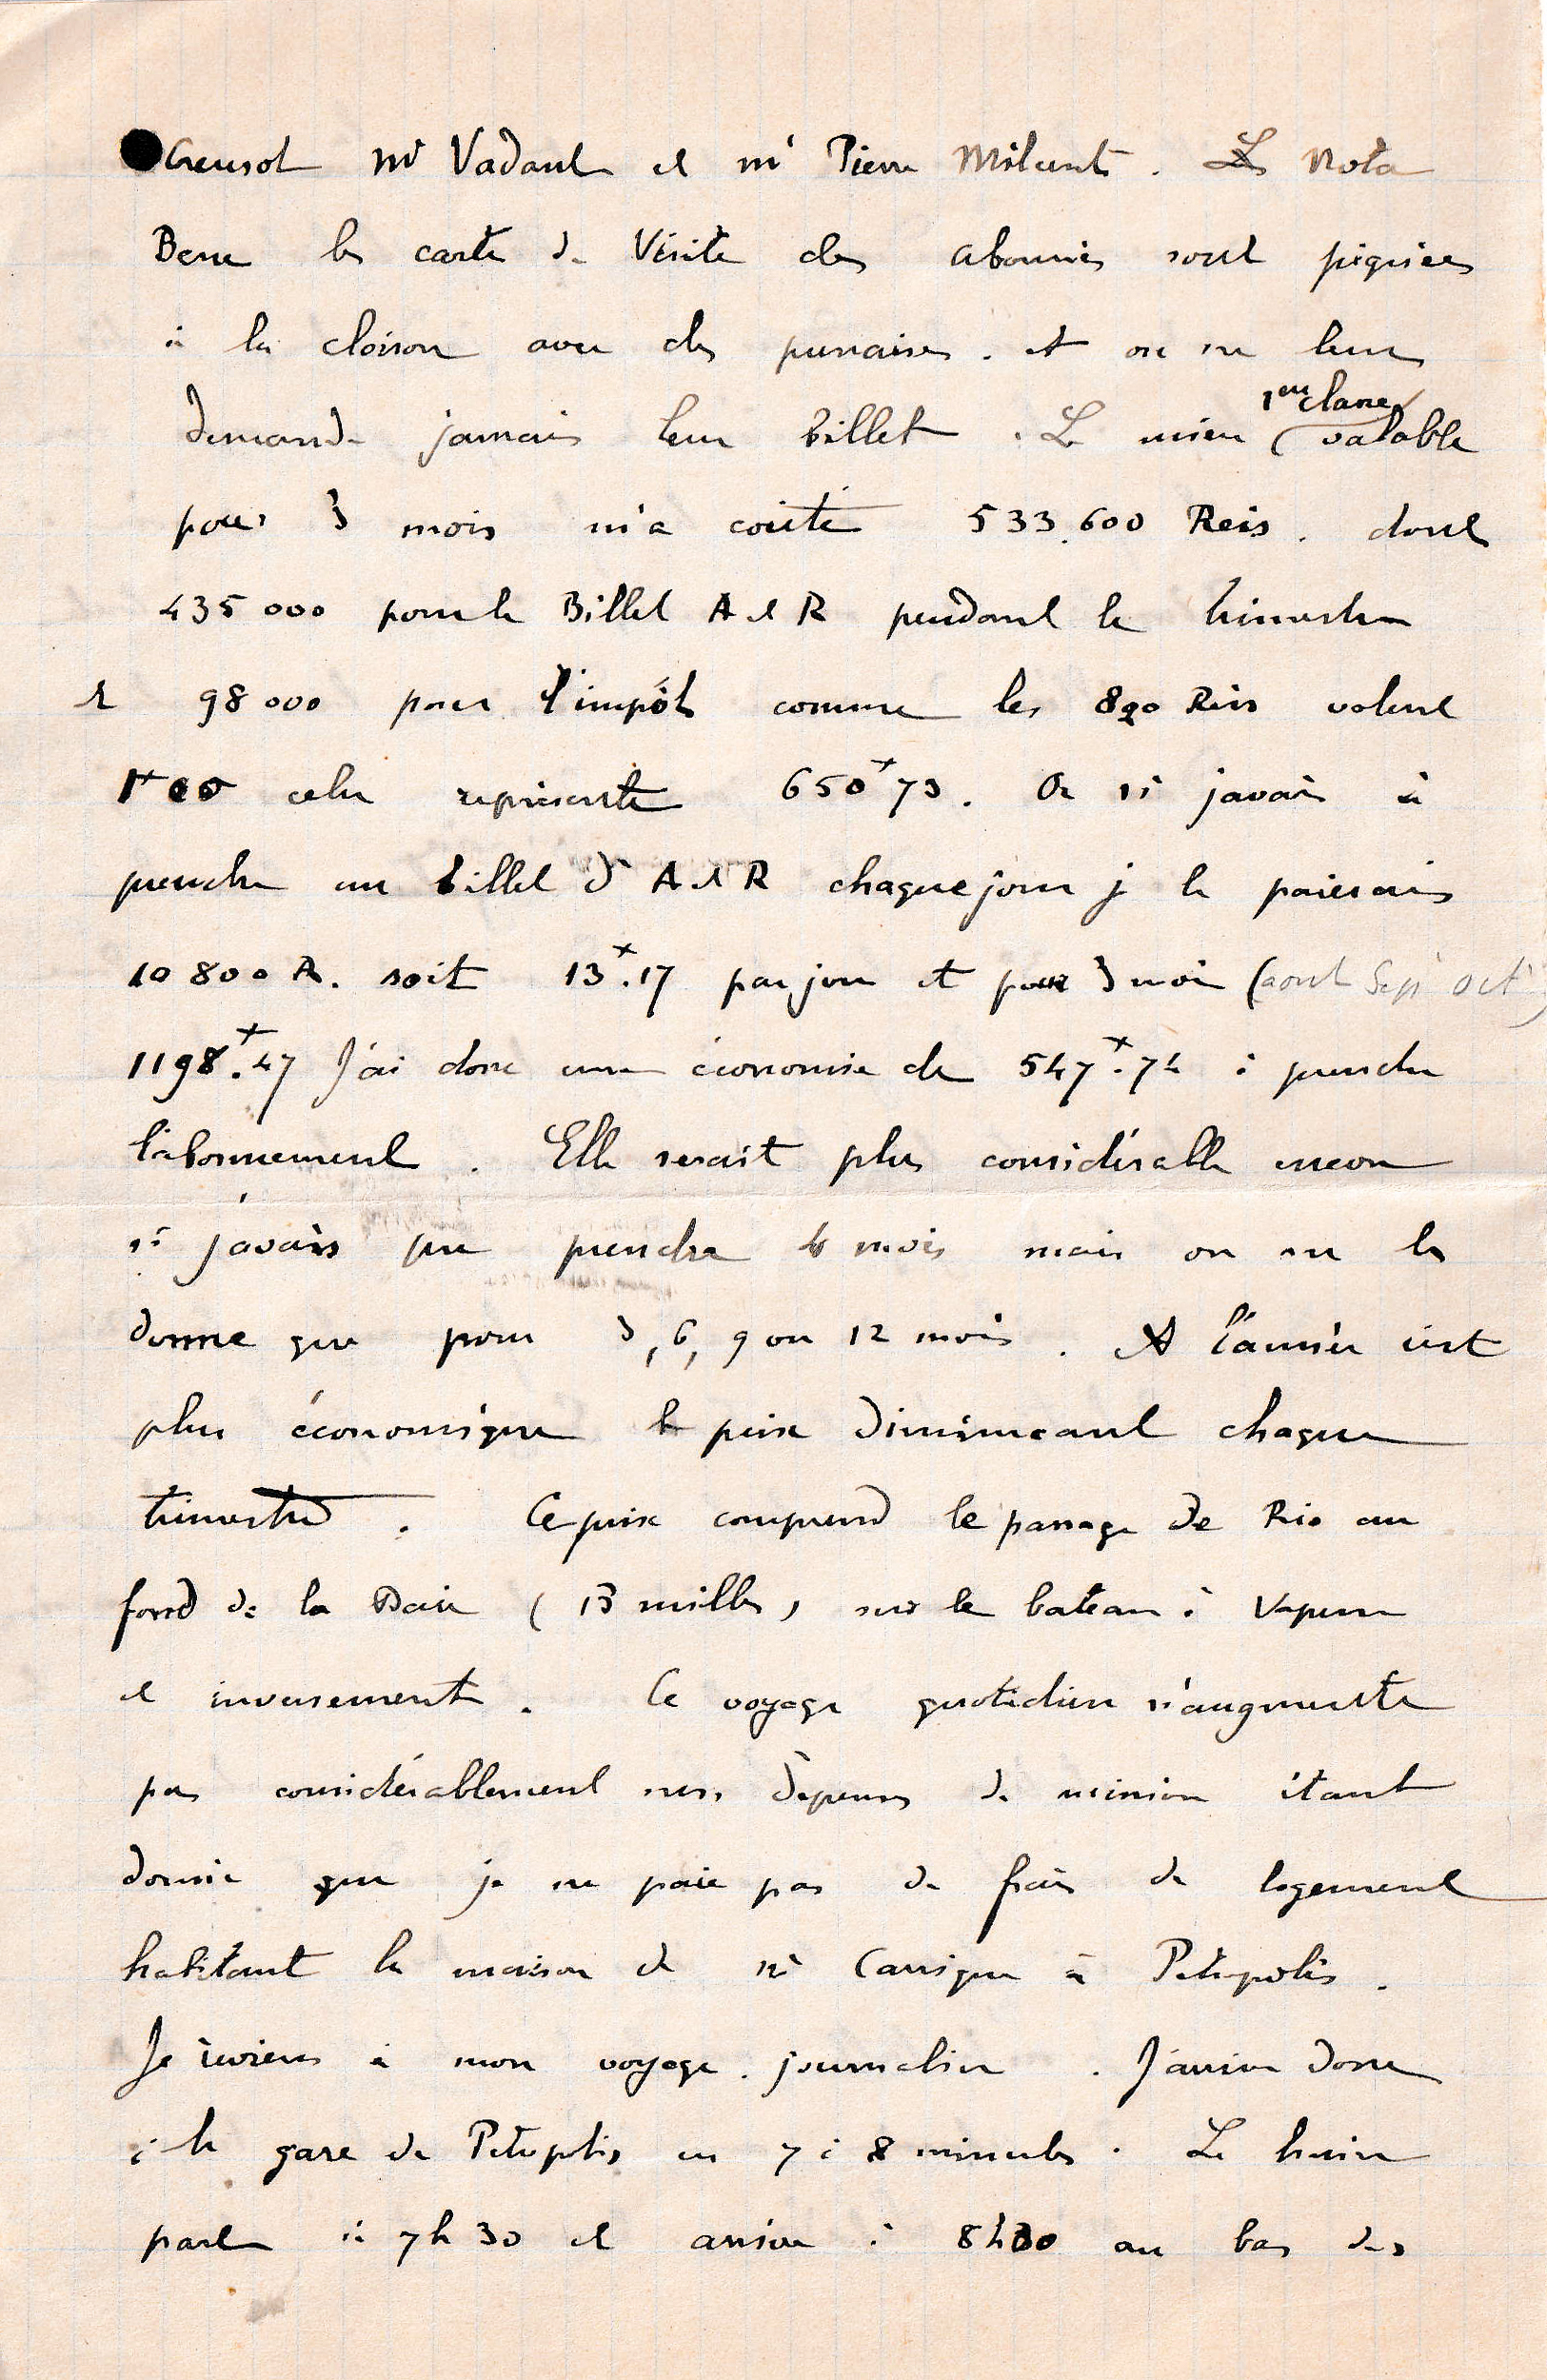 Creusot Mr Vadant et mr Pierre Milcent. Nota
Bene les carte de Visite des abonnés sont piquées
à la cloison avec des punaises. et on ne leur
demande jamais leur billet. Le mien (1ere classe) valable
pour 3 mois m'a couté 533.600 Reis. dont
435 000 pour le Billet A et R pendant le trimestre
et 98 000 pour l'impôt comme les 820 Reis valent
1f00 cela représente 650f73. Or si javais à
prendre un billet d'A et R chaque jour je le paierais
10 800 R. soit 13f.17 par jour et pour 3 mois (aout Sept Oct)
1198f.47 J'ai donc une économie de 547f.74 à prendre
l'abonnement. Elle serait plus considérable encore
si j'avais pu prendre 4 mois mais on ne les
donne que pour 3, 6, 9 ou 12 mois. A l'année c'est
plus économique le prix diminuant chaque
trimestre. Ce prix comprend le passage de Rio au
fond de la Baie (13 milles) sur le bateau à Vapeur
et inversement. Ce voyage quotidien n'augmente
pas considérablement nos dépenses de mission étant
donné que je ne paie pas de frais de logement
habitant la maison de Mr Carrigue à Petropolis.
Je reviens à mon voyage journalier. J'arrive donc
à la gare de Petropolis en 7 à 8 minutes. Le train
part à 7h30 et arrive à 8h30 au bas des